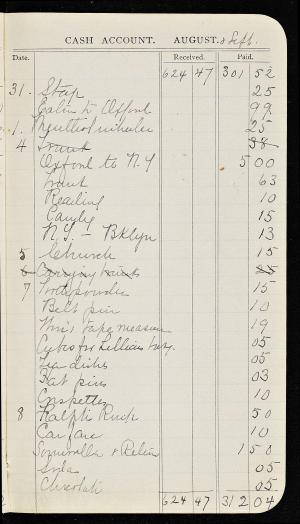 CASH ACCOUNT. AUGUST. & Sept.
Date. Received. Paid.
624 47 301 52
31. 25
to Oxford 99
1. 25
4 Trunk 58
Oxford to N.Y 5 00
Trunk 63
Reading 10
Candy 15
N.Y. - Bklyn 13
5 Church 15
6 Carrying trunk 25
7 Tooth powder 15
Belt pin 10
tape measure 19
for Lillian's 05
Tea dishes 05
Hat pins 03
10
8 Ralph's 50
Car fare 10
1 50
Soda 05
Chocolate 05
624 47 312 04